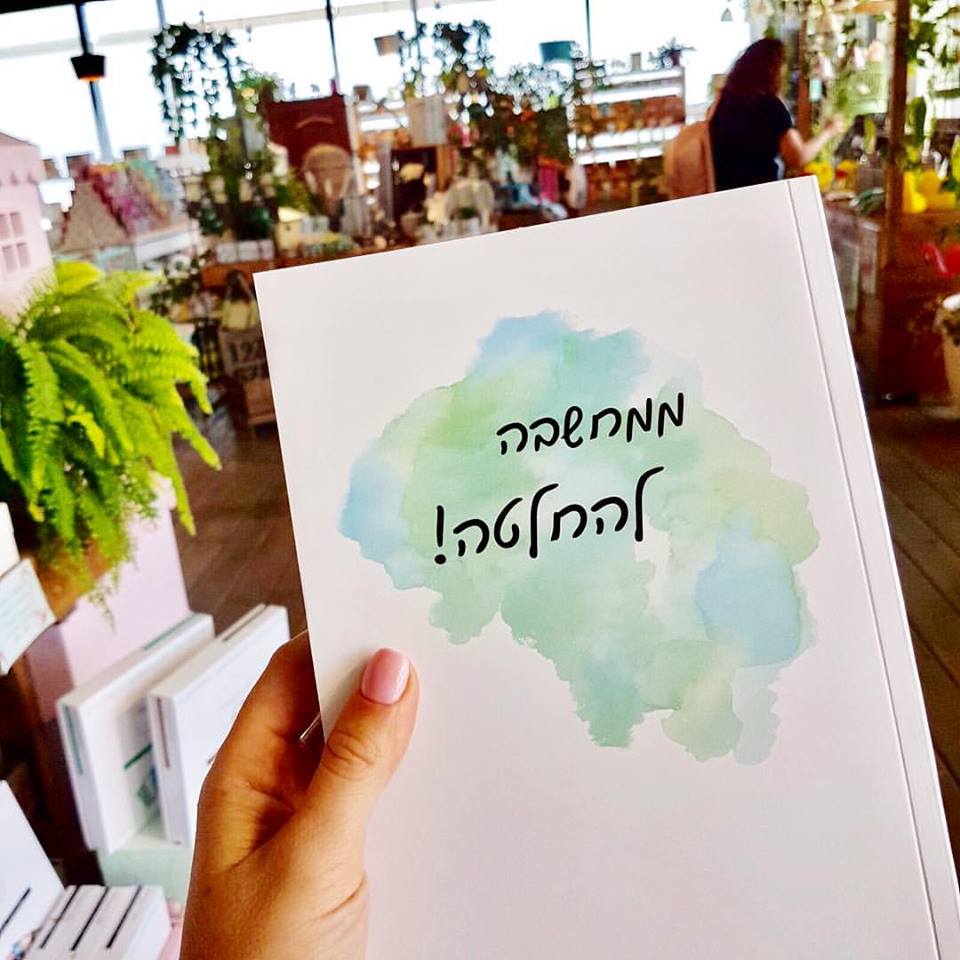 ממחשבה
להחלטה!